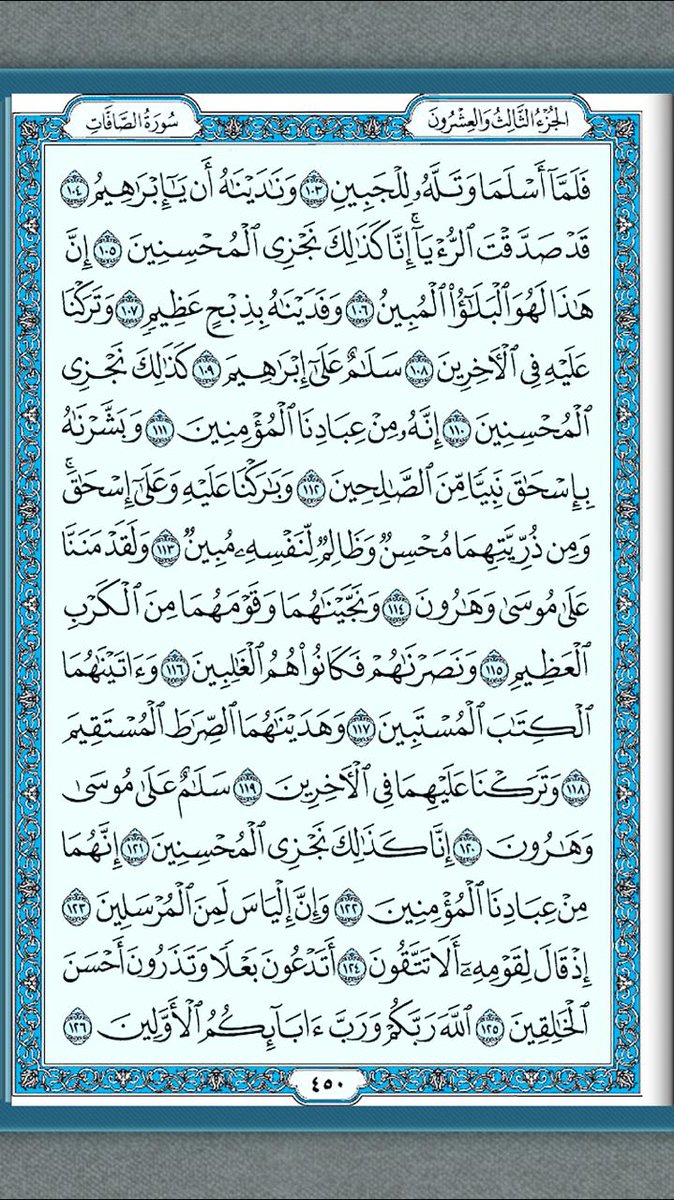 الجُزْءُ الثَّالِثُ وَالعِشْرُونَ
سُورَةُ الصَّافَّاتِ
فَلَمَّآ أَسۡلَمَا وَتَلَّهُۥ لِلۡجَبِينِ ١٠٣ وَنَٰدَيۡنَٰهُ أَن يَٰٓإِبۡرَٰهِيمُ ١٠٤
قَدۡ صَدَّقۡتَ ٱلرُّءۡيَآۚ إِنَّا كَذَٰلِكَ نَجۡزِي ٱلۡمُحۡسِنِينَ ١٠٥ إِنَّ
هَٰذَا لَهُوَ ٱلۡبَلَٰٓؤُاْ ٱلۡمُبِينُ ١٠٦ وَفَدَيۡنَٰهُ بِذِبۡحٍ عَظِيمٖ ١٠٧ وَتَرَكۡنَا
عَلَيۡهِ فِي ٱلۡأٓخِرِينَ ١٠٨ سَلَٰمٌ عَلَىٰٓ إِبۡرَٰهِيمَ ١٠٩ كَذَٰلِكَ نَجۡزِي
ٱلۡمُحۡسِنِينَ ١١٠ إِنَّهُۥ مِنۡ عِبَادِنَا ٱلۡمُؤۡمِنِينَ ١١١ وَبَشَّرۡنَٰهُ
بِإِسۡحَٰقَ نَبِيّٗا مِّنَ ٱلصَّٰلِحِينَ ١١٢ وَبَٰرَكۡنَا عَلَيۡهِ وَعَلَىٰٓ إِسۡحَٰقَۚ
وَمِن ذُرِّيَّتِهِمَا مُحۡسِنٞ وَظَالِمٞ لِّنَفۡسِهِۦ مُبِينٞ ١١٣ وَلَقَدۡ مَنَنَّا
عَلَىٰ مُوسَىٰ وَهَٰرُونَ ١١٤ وَنَجَّيۡنَٰهُمَا وَقَوۡمَهُمَا مِنَ ٱلۡكَرۡبِ
ٱلۡعَظِيمِ ١١٥ وَنَصَرۡنَٰهُمۡ فَكَانُواْ هُمُ ٱلۡغَٰلِبِينَ ١١٦ وَءَاتَيۡنَٰهُمَا
ٱلۡكِتَٰبَ ٱلۡمُسۡتَبِينَ ١١٧ وَهَدَيۡنَٰهُمَا ٱلصِّرَٰطَ ٱلۡمُسۡتَقِيمَ
١١٨ وَتَرَكۡنَا عَلَيۡهِمَا فِي ٱلۡأٓخِرِينَ ١١٩ سَلَٰمٌ عَلَىٰ مُوسَىٰ
وَهَٰرُونَ ١٢٠ إِنَّا كَذَٰلِكَ نَجۡزِي ٱلۡمُحۡسِنِينَ ١٢١ إِنَّهُمَا
مِنۡ عِبَادِنَا ٱلۡمُؤۡمِنِينَ ١٢٢ وَإِنَّ إِلۡيَاسَ لَمِنَ ٱلۡمُرۡسَلِينَ ١٢٣
إِذۡ قَالَ لِقَوۡمِهِۦٓ أَلَا تَتَّقُونَ ١٢٤ أَتَدۡعُونَ بَعۡلٗا وَتَذَرُونَ أَحۡسَنَ
ٱلۡخَٰلِقِينَ ١٢٥ ٱللَّهَ رَبَّكُمۡ وَرَبَّ ءَابَآئِكُمُ ٱلۡأَوَّلِينَ ١٢٦
٤٥٠